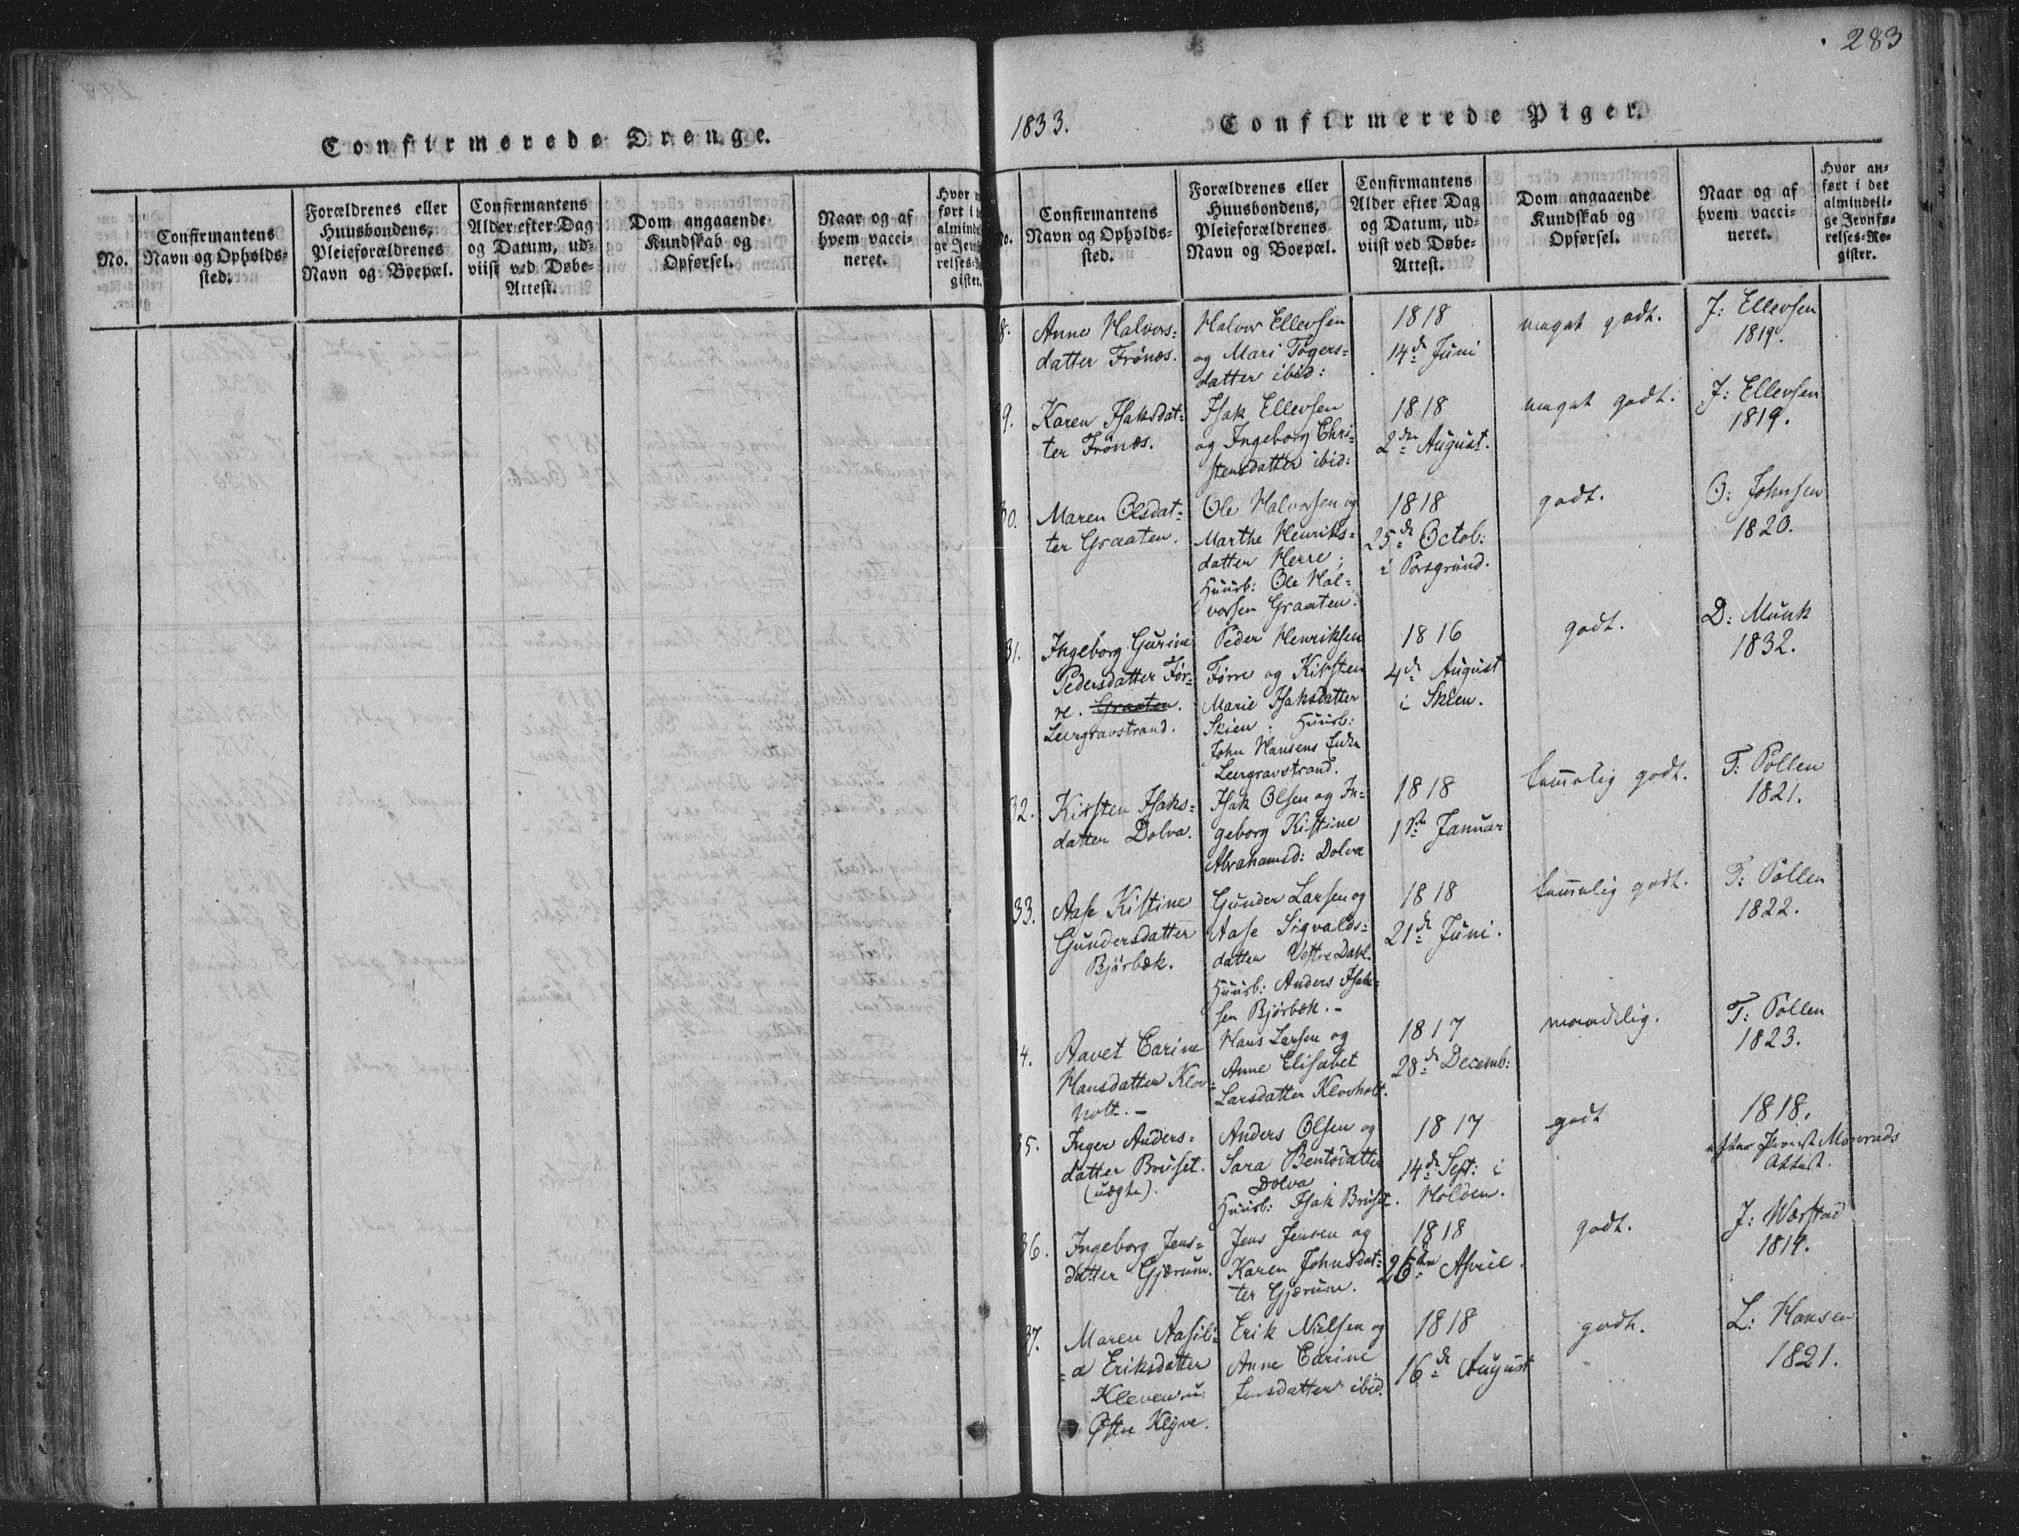 283
Confirmerede Drenge.
No.
Confirmantens
Navn og Opholds-
sted.
Forældrenes eller
Huusbondens,
Pleieforældrenes
Navn og Boepæl.
Confirmantens
Alder efter Dag
og Datum, ud-
viist ved Døbe-
Attest.
Dom angaaende
Kundskab og
Opførsel.
Naar og af
hvem vacci-
neret.
Hvor
ført i
alminde
ge Jevn
relses-
gister.
1833.
Confirmerede Piger.
No.
Confirmantens
Navn og Opholds-
sted.
Forældrenes eller
Huusbondens,
Pleieforældrenes
Navn og Boepæl.
Confirmantens
Alder efter Dag
og Datum, ud-
viist ved Døbe-
Attest.
Dom angaaende
Kundskab og
Opførsel.
Naar og af
hvem vacci-
neret.
Hvor an-
ført i det
almindeli-
ge Jevnfø-
relses-Re-
gister.
8.
Anne Halvors-
datter Frönæs.
Halvor Ellevsen
og Mari Tøgers-
datter ibid:
1818
14d Juni
meget godt.
J: Ellevsen
1819.
9.
Karen Isaksdat-
ter Frönæs.
Isak Ellevsen
og Ingeborg Chri-
stensdatter ibid:
1818
2den August.
meget godt.
J: Ellevsen
1819.
30.
Maren Olsdat-
ter Graaten.
Ole Halvorsen og
Marthe Henriks-
datter Herre;
Huusb: Ole Hal-
vorsen Graaten.
1818
25d Octob:
i Porsgrund.
godt.
O: Johnsen
1820.
31.
Ingeborg Gurine
Pedersdatter För-
re. Graaten.
Leergravstrand.
Peder Henriksen
Förre og Kirsten
Marie Isaksdatter
Skien; Huusb:
John Hansens Enke
Leergravstrand.
1816
4d August
i Skien.
godt.
D: Munk
1832.
32.
Kirsten Isaks-
datter Dolva.
Isak Olsen og In-
geborg Kistine
Abrahamsd: Dolva
1818
1ste Januar
temmelig godt.
T: Pollen
1821.
33.
Aase Kistine
Gundersdatter
Björbæk.
Gunder Larsen og
Aase Sigvalds-
datter Vestre Dahl.
Huusb: Anders Isak-
sen Björbæk. -
1818
21d Juni.
temmelig godt.
T: Pollen
1822.
4.
Aavet Carine
Hansdatter Klov-
holt. -
Hans Larsen og
Anne Elisabet
Larsdatter Klovholt.
1817
28d Decemb:
maadelig.
T: Pollen
1823.
35.
Inger Anders-
datter Bruset.
(uægte).
Anders Olsen og
Sara Bentsdatter
Dolva
Huusb: Isak Bruset.
1817
14d Sept: i
Holden.
godt
1818.
efter Provst Monrads
Attest.
36.
Ingeborg Jens-
datter Gjærum.
Jens Jensen og
Karen Johnsdat-
ter Gjærum.
1818
26de April.
godt.
J: Wærstad
1819.
37.
Maren Aasili-
=a Eriksdatter
Kleven u:
Østre Klyve.
Erik Nielsen og
Anne Carine
Jensdatter ibid.
1818
16d August
godt.
L: Hansen
1821.